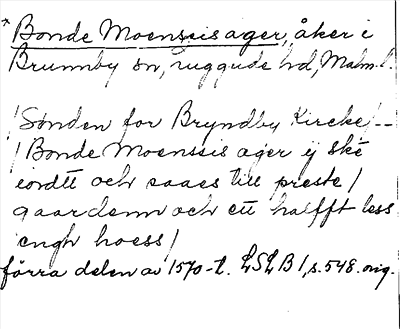 * Bonde Moenssis ager, åker i
Brunnby sn, Luggude hd, Malm.l.
/ Sønden for Bryndby Kircke / --
/ Bonde Moenssis ager ij ske
iordtt och saaes till preste /
gaardenn och ett halfft less
engh hoess /
förra delen av 1570-t. LSLB 1, s. 548. orig.